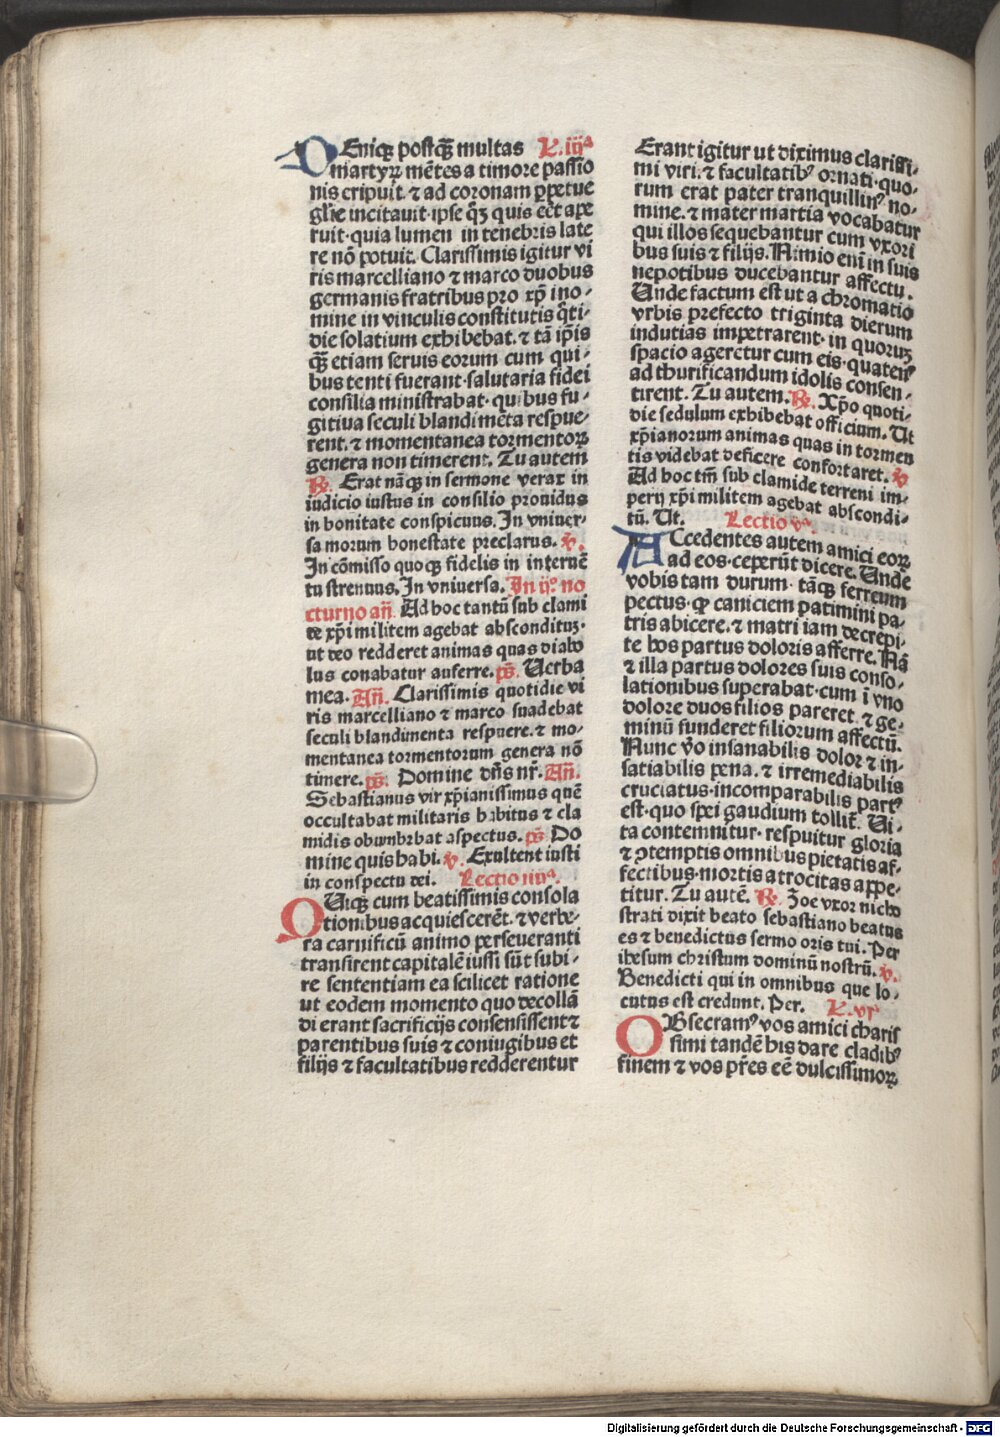 DEniqꝫ postqȝ̃ multas L. iijᵃ
martyrꝝ mẽtes a timore passio
nis eripuit. ⁊ ad coronam ꝑpetue
gl̃ie incitauit· ipse qȝ̃ quis eẽt ape
ruit· quia lumen in tenebris late
re nõ potuit. Clarissimis igitur vi
ris marcelliano ⁊ marco duobus
germanis fratribus pro xp̃i no⸗
mine in vinculis constitutis q̃ti⸗
die solatium exhibebat. ⁊ tã ip̃is
qȝ̃ etiam seruis eorum cum qui⸗
bus tenti fuerant· salutaria fidei
consilia ministrabat· quibus fu⸗
gitiua seculi blandimẽta respue⸗
rent. ⁊ momentanea tormentoꝝ
genera non timerent. Tu autem
℞. Erat nãqꝫ in sermone verax in
iudicio iustus in consilio prouidus
in bonitate conspicuus. In vniuer⸗
sa morum honestate preclarus. ℣.
In cõmisso quoqꝫ fidelis in interuẽ
tu strenuus. In vniuersa. In ijº. no
cturno añ. Ad hoc tantũ sub clami
de xp̃i militem agebat absconditũ·
ut deo redderet animas quas diabo
lus conabatur auferre. ps̃. Uerba
mea. Añ. Clarissimis quotidie vi
ris marcelliano ⁊ marco suadebat
seculi blandimenta respuere. ⁊ mo⸗
mentanea tormentorum genera nõ
timere. ps̃. Domine dñs nr̃. Añ.
Sebastianus vir xp̃ianissimus quẽ
occultabat militaris habitus ⁊ cla
midis obumbrabat aspectus. ps̃. Do
mine quis habi. ℣. Exultent iusti
in conspectu dei. Lectio iiijᵃ.
QUiqꝫ cum beatissimis consola
tionibus acquiescerẽt. ⁊ verbe⸗
ra carnificũ animo perseueranti
transirent capitalẽ iussi sũt subi⸗
re sententiam ea scilicet ratione
ut eodem momento quo decollã
di erant sacrificijs consensissent ⁊
parentibus suis ⁊ coniugibus et
filijs ⁊ facultatibus redderentur
Erant igitur ut diximus clarissi⸗
mi viri. ⁊ facultatibꝰ ornati· quo⸗
rum erat pater tranquillinꝰ no⸗
mine. ⁊ mater martia vocabatur
qui illos sequebantur cum vxori
bus suis ⁊ filijs. Nimio eni̅ in suis
nepotibus ducebantur affectu.
Unde factum est ut a chromatio
vrbis prefecto triginta dierum
indutias impetrarent· in quoruꝫ
spacio ageretur cum eis· quatenꝰ
ad thurificandum idolis consen⸗
tirent. Tu autem. ℞. Xp̃o quoti⸗
die sedulum exhibebat officium. Ut
xp̃ianorum animas quas in tormen
tis videbat deficere confortaret. ℣
Ad hoc tm̃ sub clamide terreni im⸗
perij xp̃i militem agebat abscondi⸗
tũ. Ut. Lectio vᵃ.
ACcedentes autem amici eoꝝ
ad eos· ceperũt dicere. Unde
vobis tam durum· tãqꝫ ferreum
pectus· ꝙ caniciem patimini pa⸗
tris abicere. ⁊ matri iam decrepi⸗
te hos partus doloris afferre. Nã
⁊ illa partus dolores suis conso⸗
lationibus superabat· cum i̅ vno
dolore duos filios pareret. ⁊ ge⸗
minũ funderet filiorum affectũ.
Nunc ṽo insanabilis dolor ⁊ in⸗
satiabilis pena. ⁊ irremediabilis
cruciatus· incomparabilis partꝰ
est· quo spei gaudium tollit̃. Ui⸗
ta contemnitur· respuitur gloria
⁊ ꝯtemptis omnibus pietatis af⸗
fectibus· mortis atrocitas appe⸗
titur. Tu autẽ. ℞. Zoe vxor nicho
strati dixit beato sebastiano beatus
es ⁊ benedictus sermo oris tui. Per
ihesum christum dominũ nostrũ. ℣.
Benedicti qui in omnibus que lo⸗
cutus est credunt. Per. L. vjᵃ
OBsecramꝰ vos amici charis
simi tandẽ his dare cladibꝰ
finem ⁊ vos p̃res eẽ dulcissimoꝝ
Digitalisierung gefördert durch die Deutsche Forschungsgemeinschaft - DFG